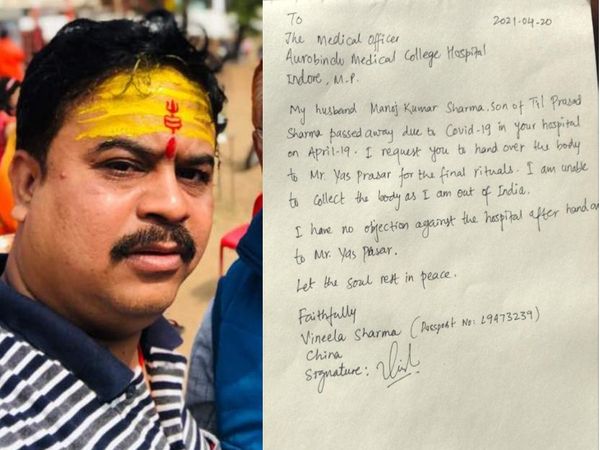 To
2021-04-20
The Medical Officer
Aurobindo Medical College Hospital
Indore, M.P.
My husband Manoj Kumar Sharma, son of Til Prasad
Sharma passed away due to Covid-19 in your hospital
on April-19. I request you to hand over the body
to Mr. Yas Prasar for the final rituals. I am unable
to collect the body as I am out of India.
I have no objection against the hospital after hand
to Mr. Yas Prasar.
Let the soul rest in peace.
Faithfully
Vineela Sharma (Passport No: L9473239)
China
Signature: